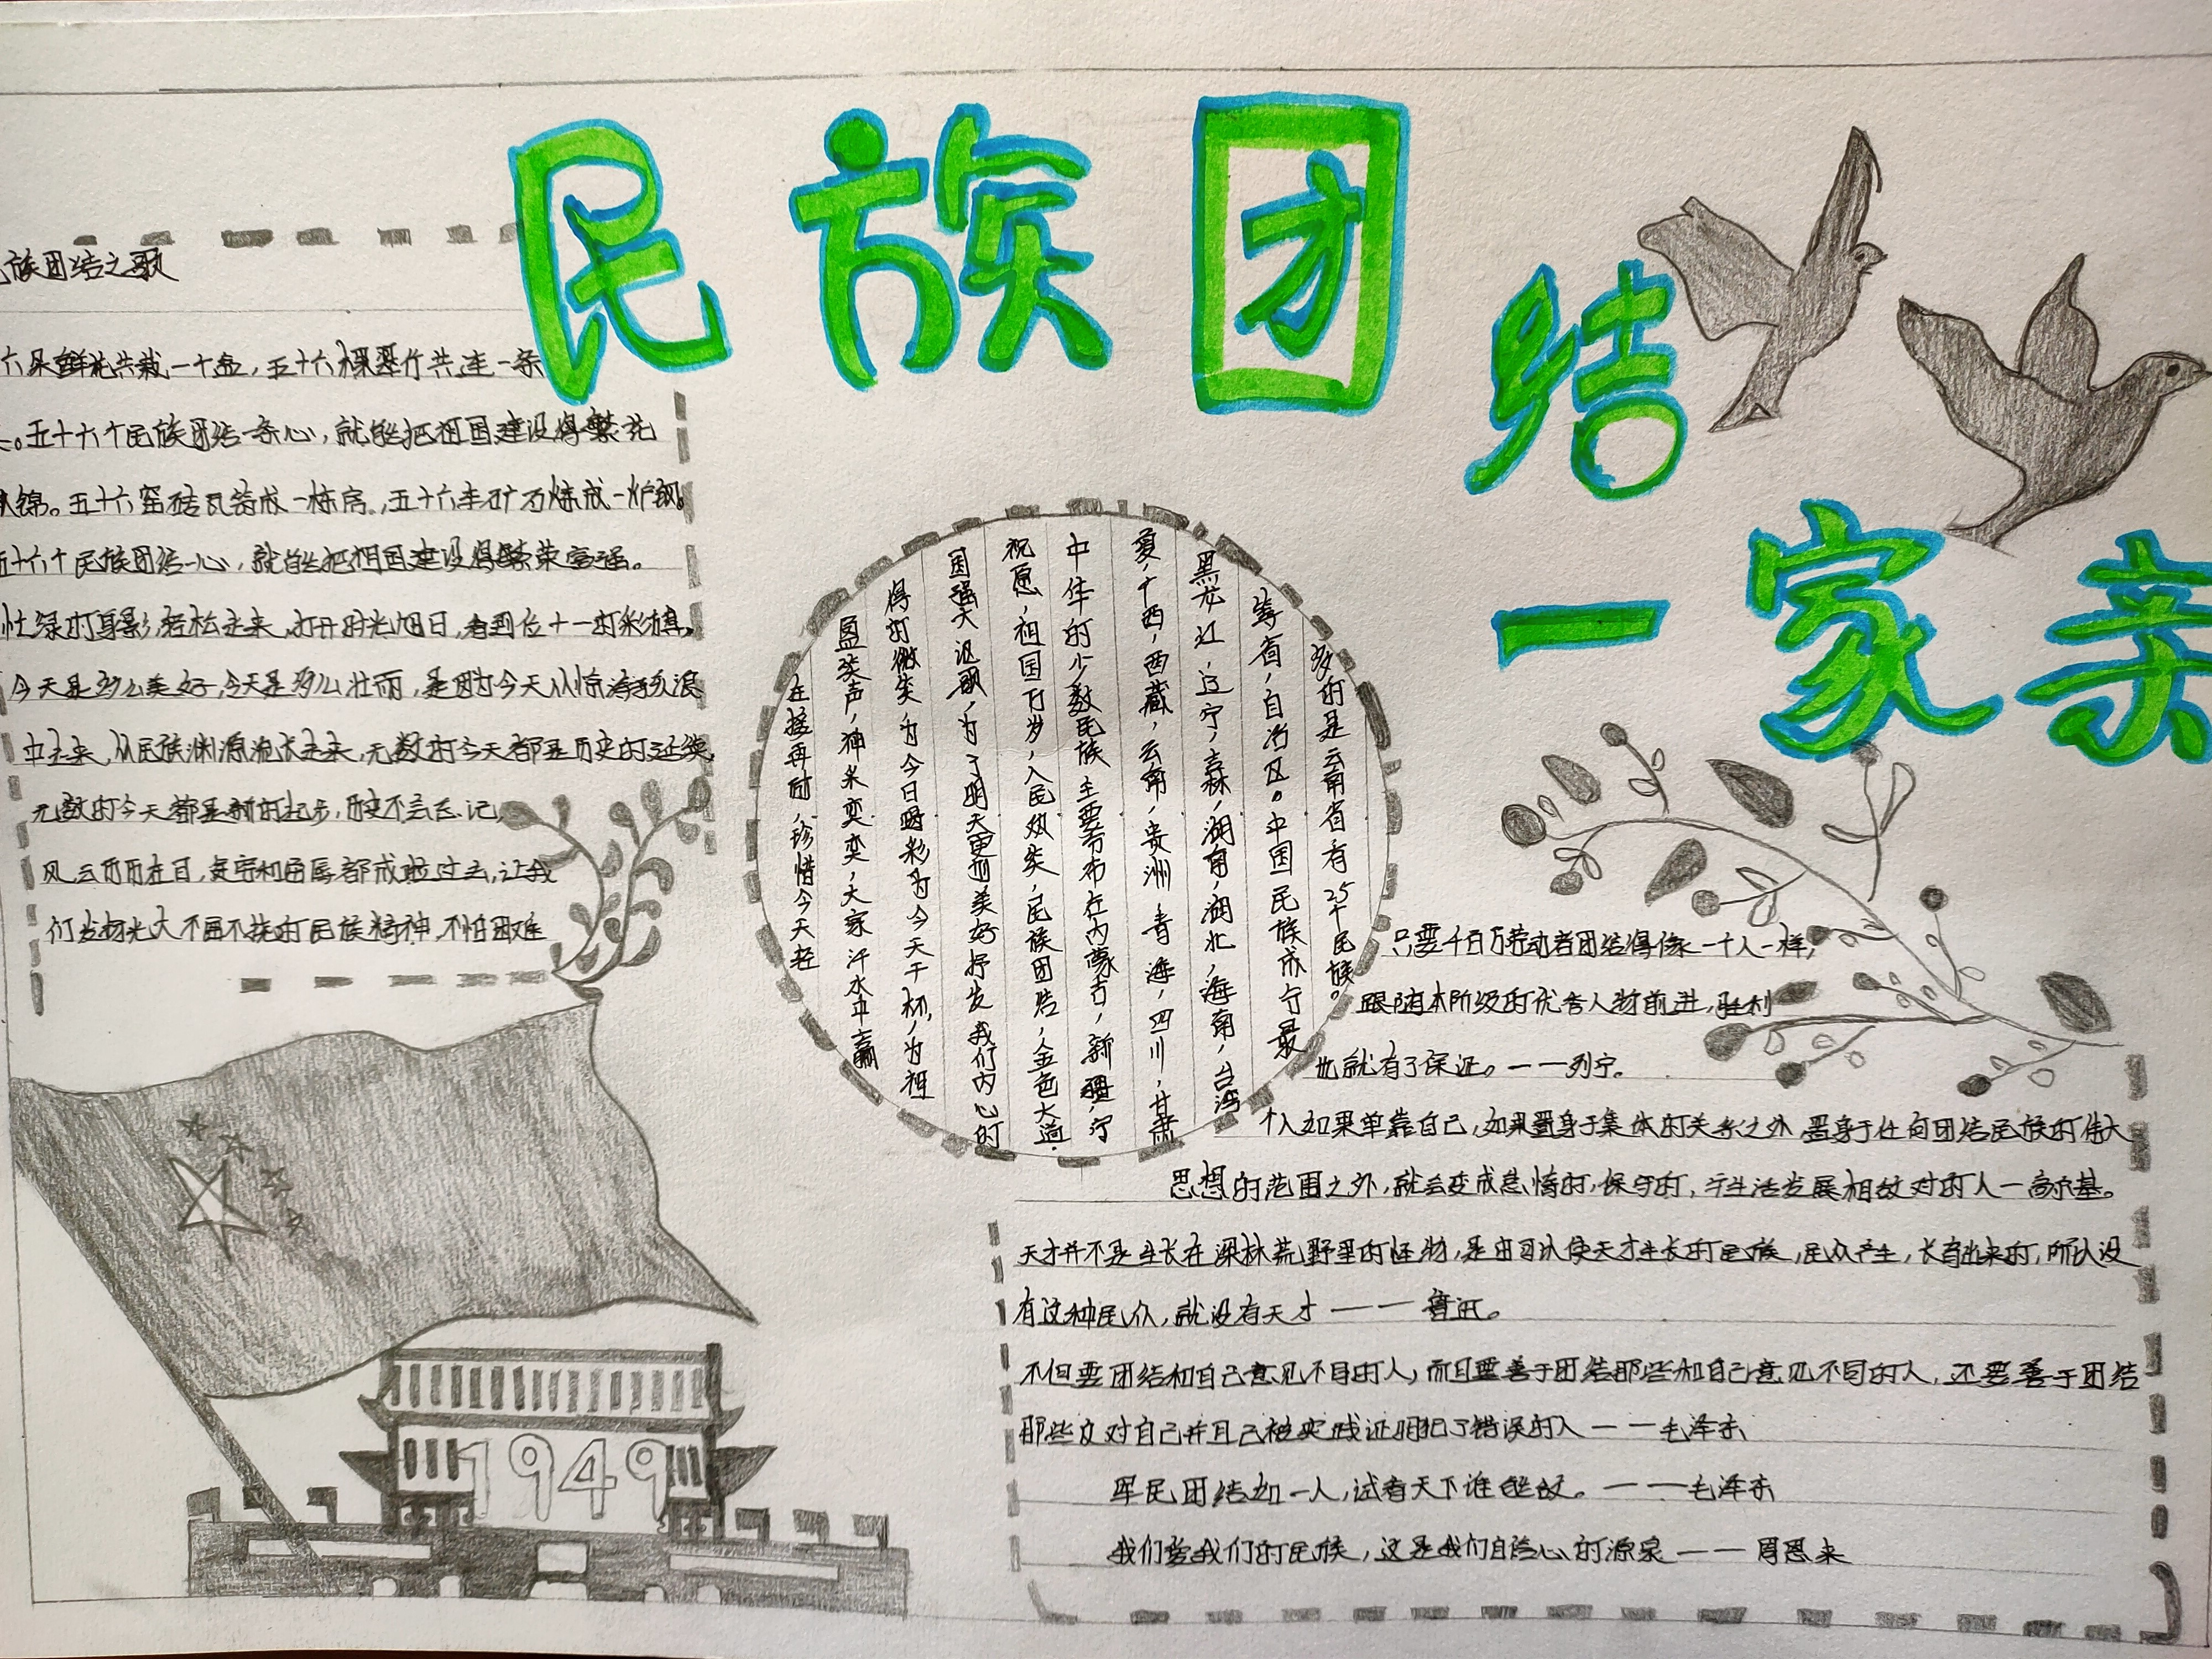 民族团结
一家亲
族团结之歌
鲜花共栽一个盆，五十六棵翠竹共连一条
。五十六个民族团结一条心，就能把祖国建设得繁花
锦。五十六窑砖瓦筑成一栋房，五十六车矿石炼成一炉钢。
五十六个民族团结一心，就能把祖国建设得繁荣富强。
忙绿的身影，轻松走来，打开时光旭日，看到位十一的彩旗。
今天是多么美好，今天是多么壮丽，是因为今天从惊涛骇浪
中走来，从民族渊源流长走来，无数的今天都是历史的延续，
无数的今天都是新的起步，历史不会忘记，
风云历历在目，贫穷和屈辱都成为过去，让我
们发扬光大不屈不挠的民族精神，不怕困难
多的是云南省，有25个民族。
等省，自治区。中国民族成分最
黑龙江，辽宁，吉林，湖南，湖北，海南，台湾
夏，广西，西藏，云南，贵洲，青海，四川，甘肃
中华的少数民族主要分布在内蒙古，新疆，宁
祝愿，祖国万岁，人民欢笑，民族团结，金色大道
国强大讴歌，为了明天更加美好抒发我们内心的
得的微笑，为今日喝彩为今天干杯，为祖
盈笑声，神采奕奕，大家汗水中赢
在接再励，珍惜今天轻
只要千百万劳动者团结得像一个人一样，
跟随本阶级的优秀人物前进，胜利
也就有了保证。——列宁。
个人如果单靠自己，如果置身于集体的关系之外置身于任何团结民族的伟大
思想的范围之外，就会变成怠惰的，保守的，于生活发展相敌对的人—高尔基。
天才并不是生长在深林荒野里的怪物，是由可以使天才生长的民族，民众产生，长育出来的，所以没
有这种民众，就没有天才——鲁迅。
不但要团结和自己意见不同的人，而且要善于团结那些和自己意见不同的人，还要善于团结
那些反对自己并且已被实践证明犯了错误的人——毛泽东
军民团结如一人，试看天下谁能敌。——毛泽东
我们爱我们的民族，这是我们自信心的源泉——周恩来
1949